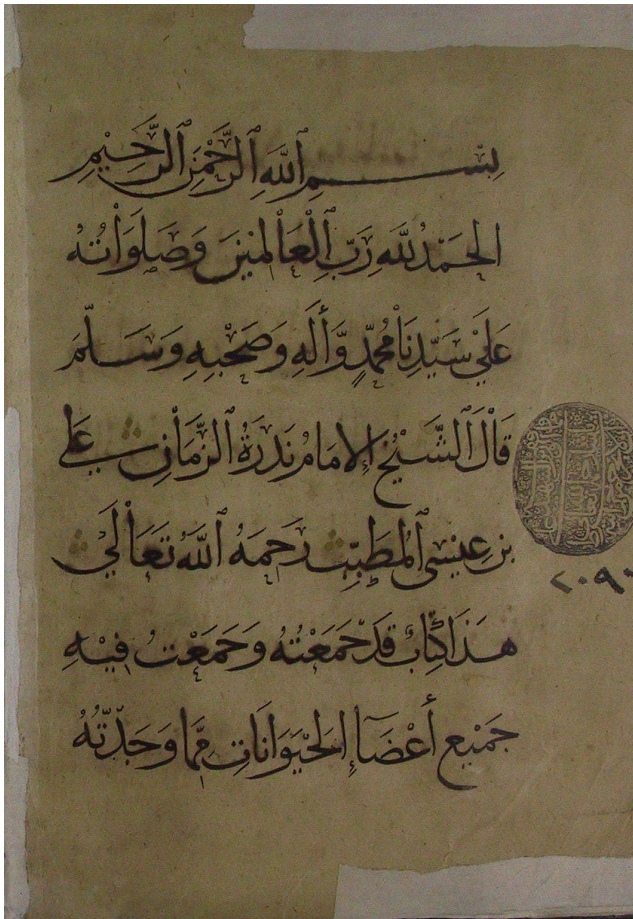 بِسْمِ ٱللَّهِ ٱلرَّحْمٰنِ ٱلرَّحِيْمِ
الحَمْدُ لِلَّهِ رَبِّ ٱلْعَالَمِيْنَ وَصَلَوَاتُهُ
عَلَىٰ سَيِّدِنَا مُحَمَّدٍ وَّأٰلِهِ وَصَحْبِهِ وَسَلَّمَ
قَالَ ٱلشَّيْخُ الإِمَامُ نَدْرَةُ ٱلزَّمَانِ عَلي
بن عِيسَى ٱلمُطَبِّبُ رَحِمَهُ ٱللَّهُ تَعَالَىٰ
هَذَا كِتَابٌ قَدْ جَمَعْتُهُ وَجَمَعْتُ فِيْهِ
جَمِيْعَ أَعْضَآءِ الحَيَوَانَاتِ مِمَّا وَجَدتُّهُ
٢٠٩٠